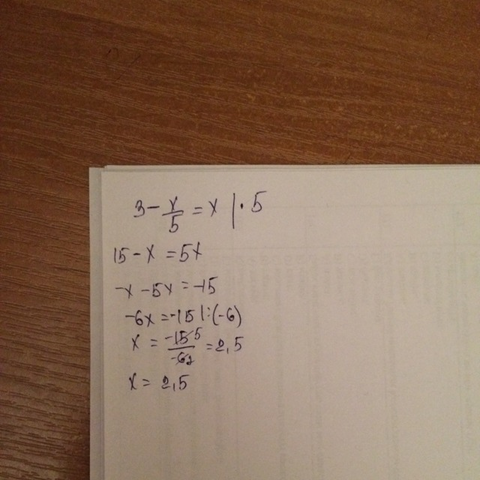 3 - x/5 = x | · 5
15 - x = 5x
-x - 5x = -15
-6x = -15 | : (-6)
x = -15 5/-6 2 = 2,5
x = 2,5